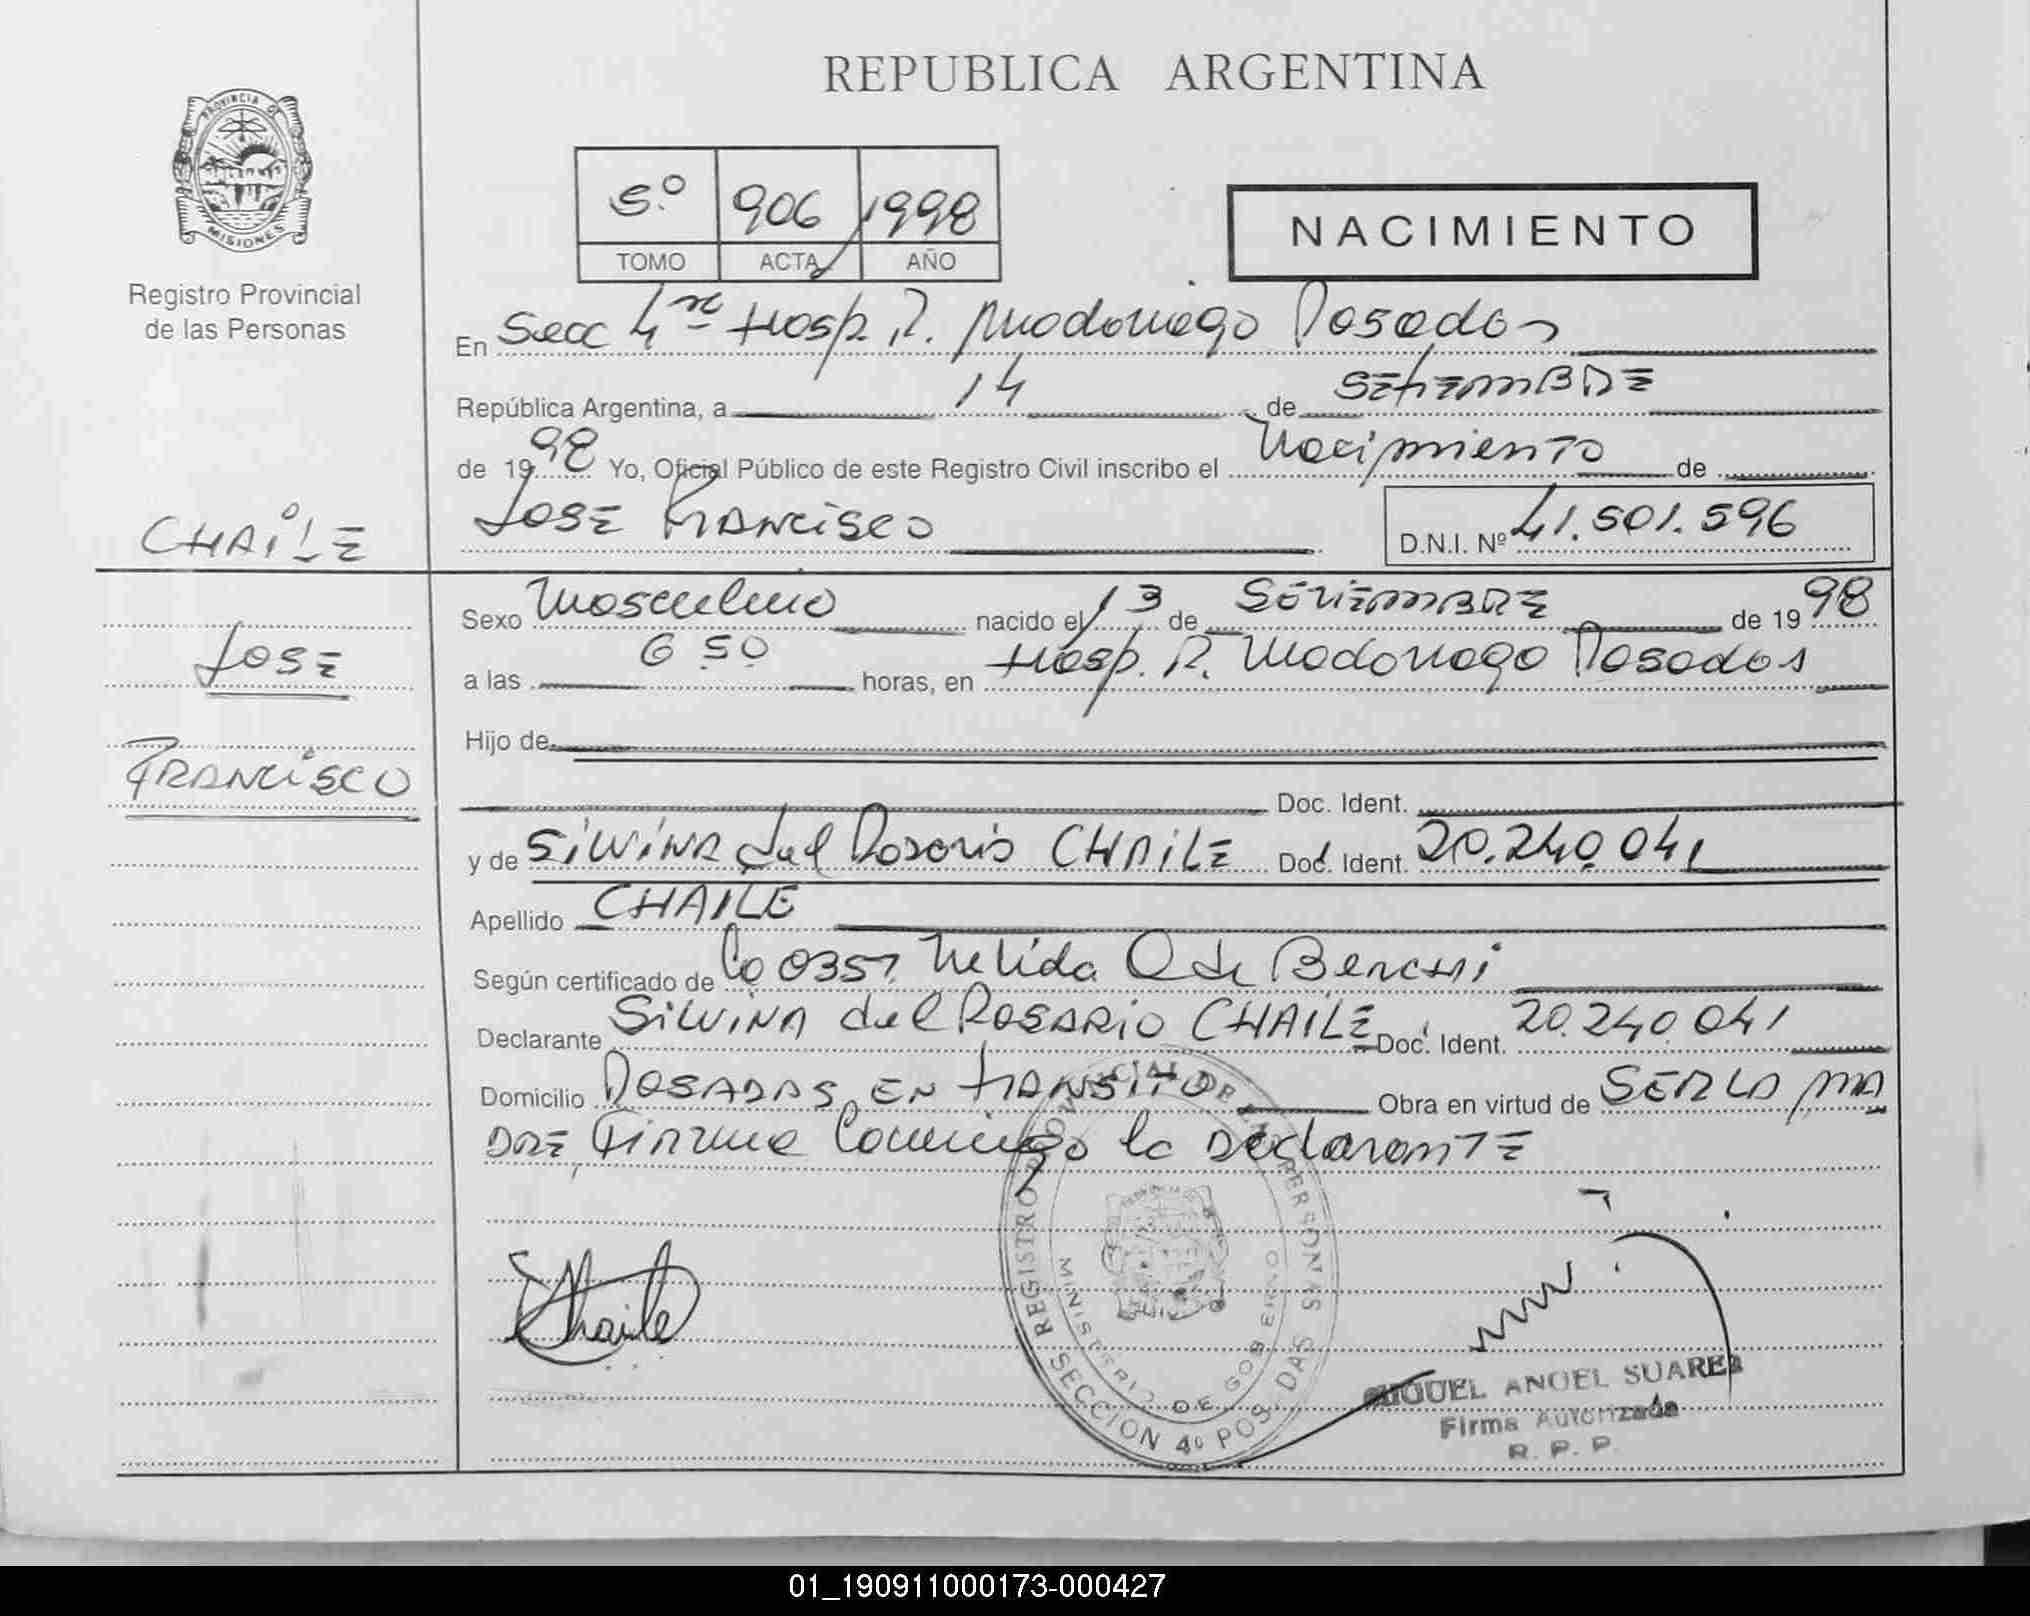 REPUBLICA ARGENTINA
PROVINCIA DE
MISIONES
Registro Provincial
de las Personas
5.º 906 1998
TOMO ACTA AÑO
NACIMIENTO
En Secc 4ª Hosp. R. Madariaga Posadas
República Argentina, a 14 de SETIEMBRE
de 1998 Yo, Oficial Público de este Registro Civil inscribo el Nacimiento de
CHAILE
JOSE FRANCISCO
D.N.I. Nº 41.501.596
Sexo Masculino nacido el 13 de SETIEMBRE de 1998
JOSE
a las 6 50 horas, en Hosp. R. Madariaga Posadas
Hijo de
FRANCISCO
Doc. Ident.
y de SILVINA del Rosario CHAILE Doc. Ident. 20.240.041
Apellido CHAILE
Según certificado de 0357 Nelida de
Declarante SILVINA del ROSARIO CHAILE Doc. Ident. 20.240.041
Domicilio POSADAS EN TRANSITO Obra en virtud de SER LA MA
DRE, Firma Conmigo la Declarante
Chaile
REGISTRO PROVINCIAL DE LAS PERSONAS
MINISTERIO DE GOBIERNO
SECCION 4º POSADAS
MIGUEL ANGEL SUAREZ
Firma Autorizada
R. P. P.
01_190911000173-000427